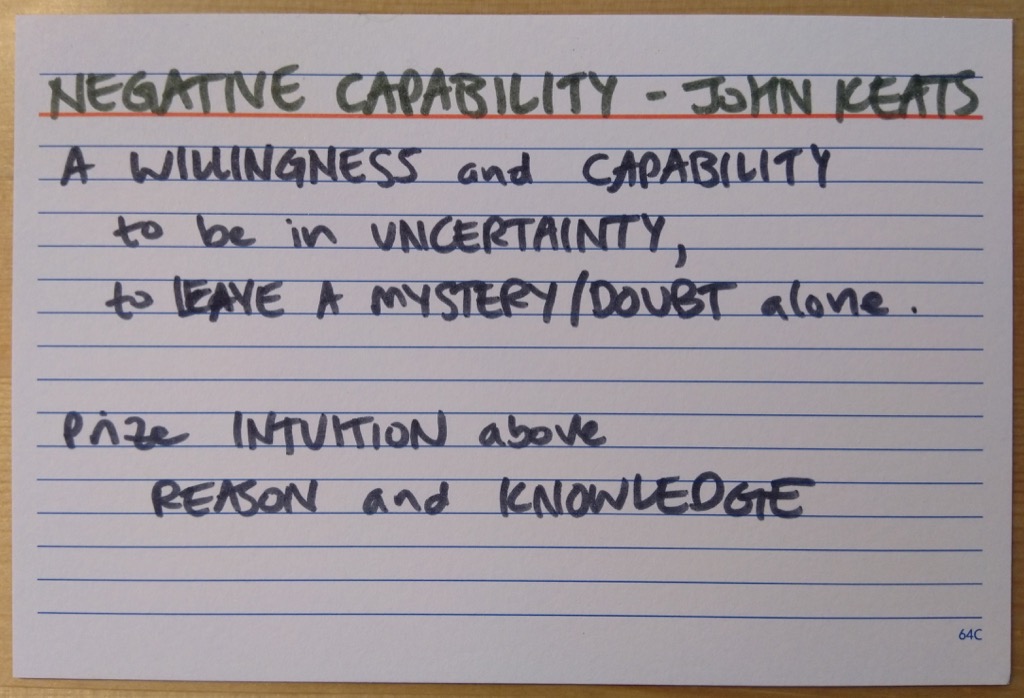 NEGATIVE CAPABILITY - JOHN KEATS
A WILLINGNESS and CAPABILITY
to be in UNCERTAINTY,
to LEAVE A MYSTERY/DOUBT alone.
Prize INTUITION above
REASON and KNOWLEDGE
64C